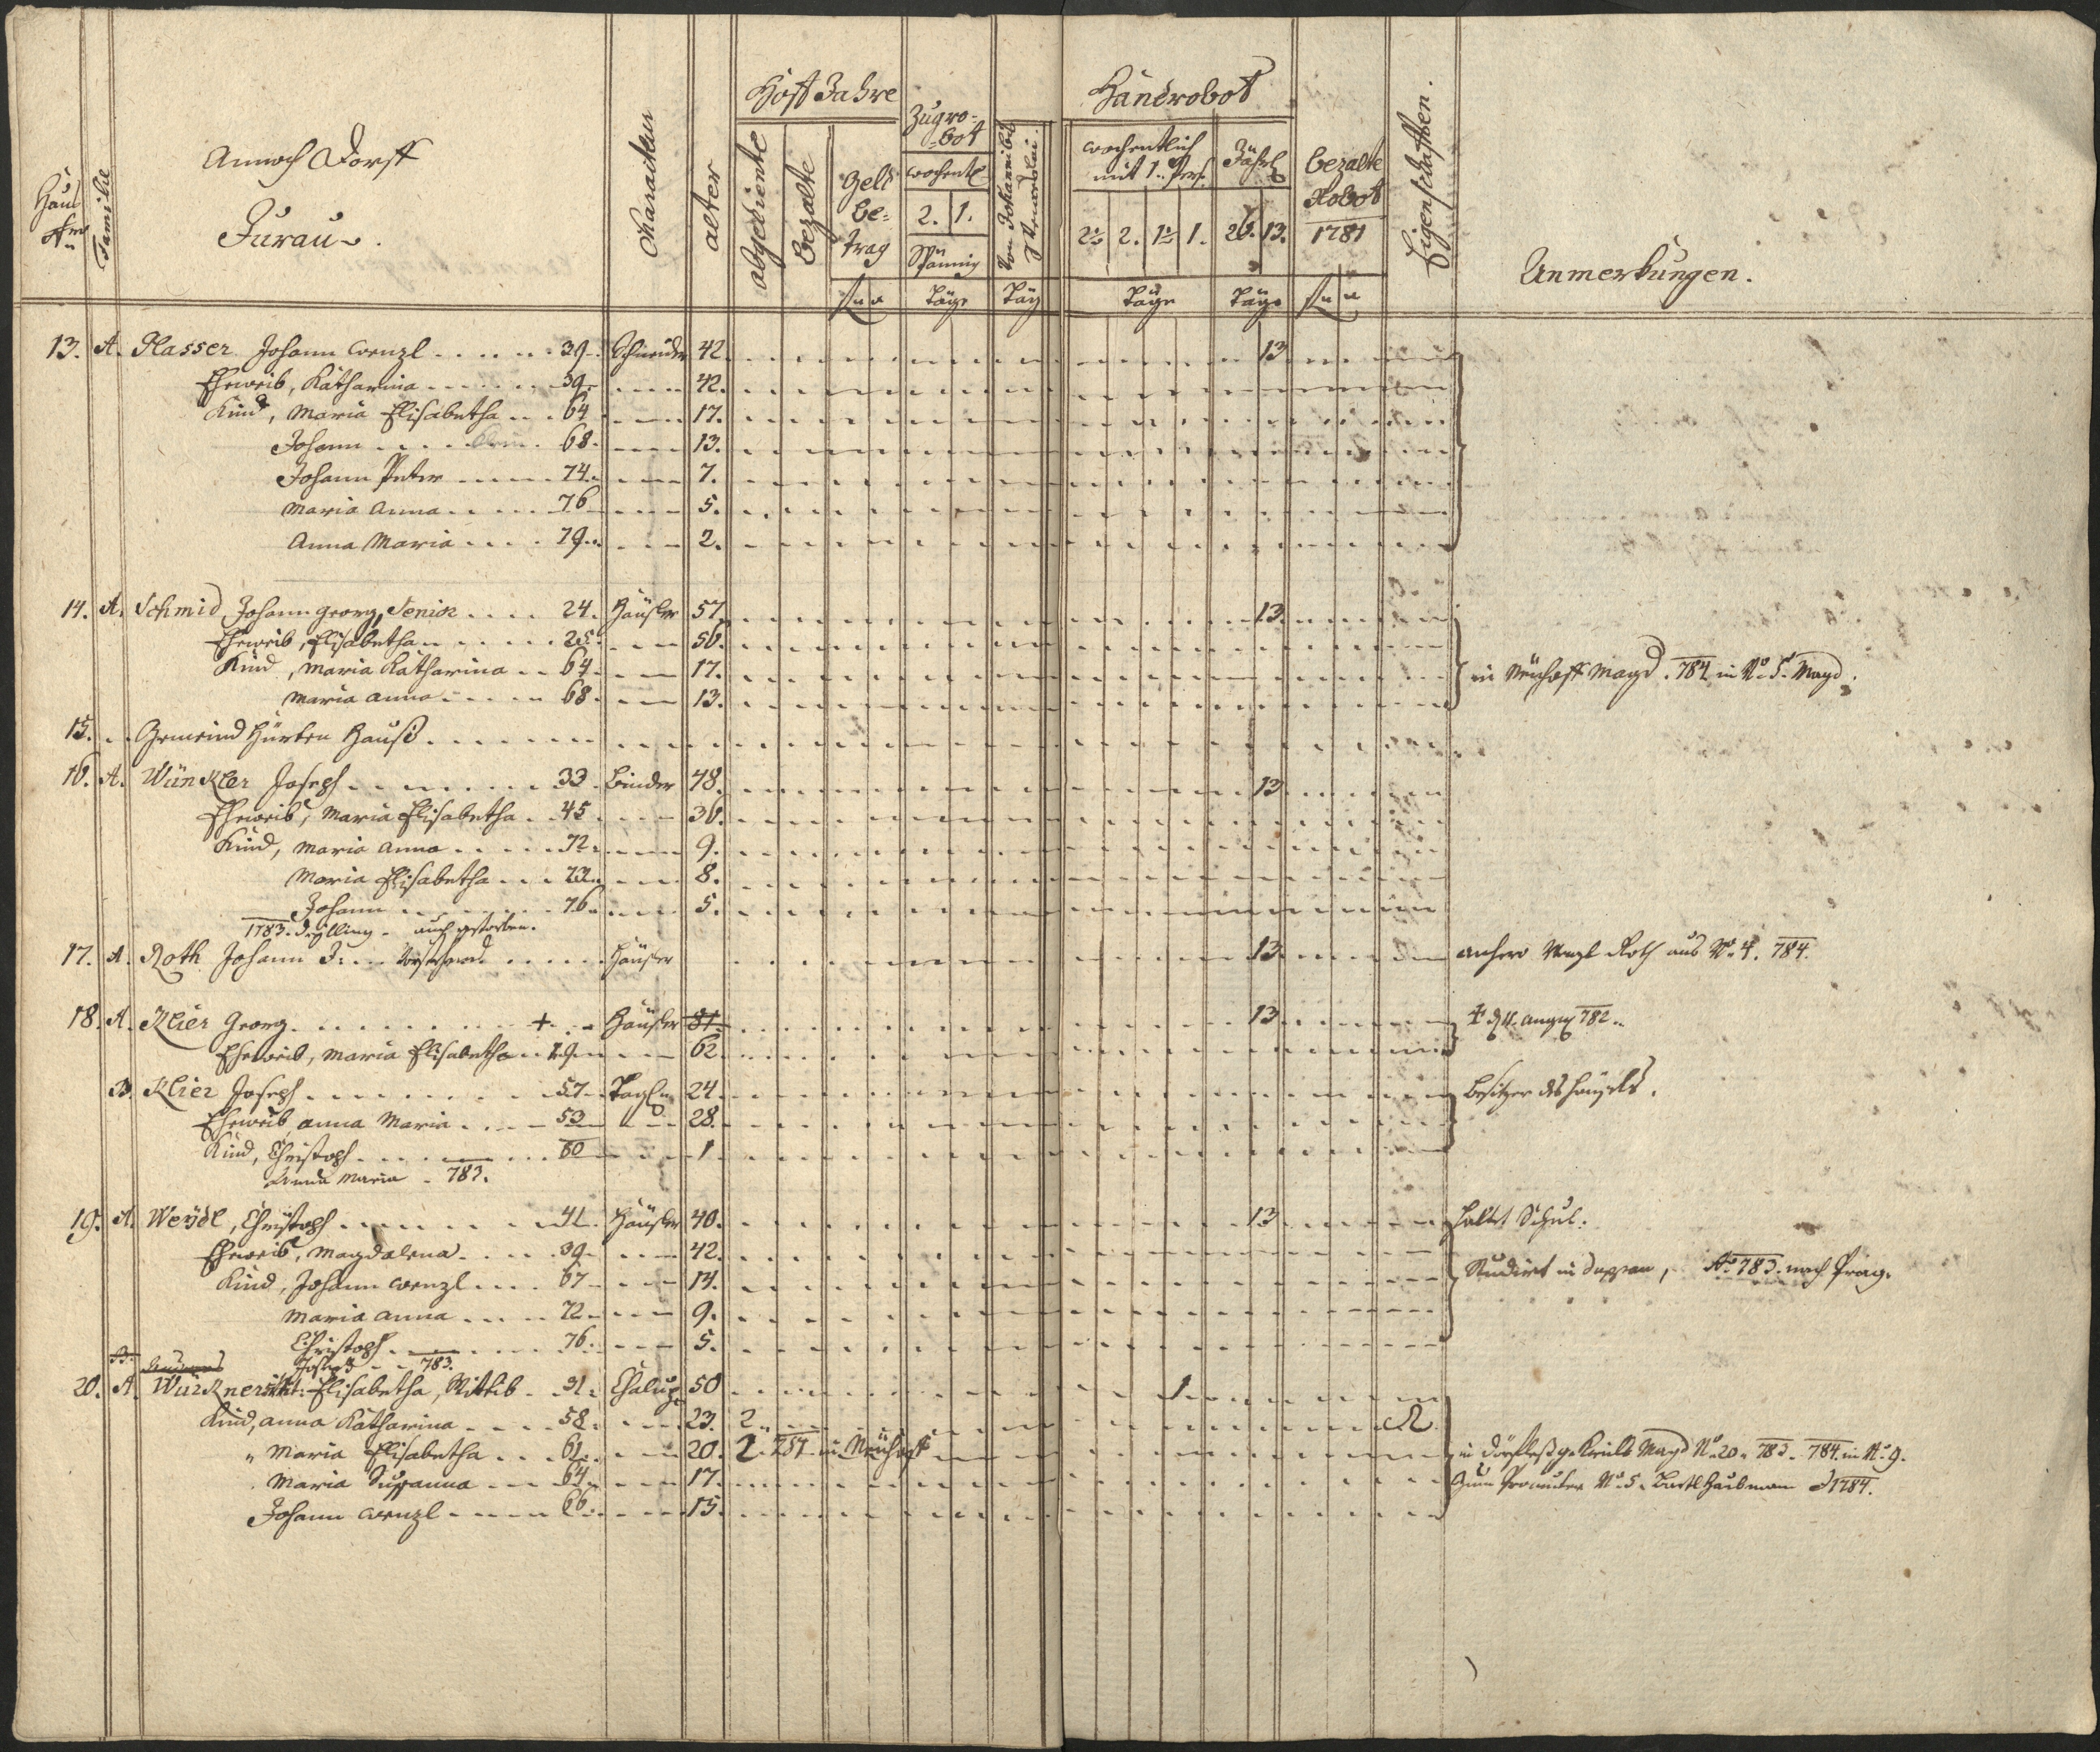 Hauß Nro
Familie
Annoch Dorff
Jurau.
Charackter
alter
Hoff Jahre
abgediente
bezalte
Geld be=
trag
f x
Zugro=
=bot
wochentl
2. 1.
Spännig
Täge
Von Johanni bis
Täg
Handrobot
wochentlich
mit 1. Pers.
2½ 2. 1½ 1.
Täge
Jährl
26. 13.
Täge
bezalte
Robot
1781
f x
Eigenschafften.
Anmerkungen.
13. A. Plasser Johann Wenzl 39. Schneider 42. 13
Eheweib, Katharina 39. 42.
Kind, Maria Elisabetha 64 17.
Johann 68. 13.
Johann Peter 74. 7.
Maria Anna 76 5.
Anna Maria 79. 2.
14. A. Schmid Johann Georg, Senior 24. Häusler 57. 13.
Eheweib, Elisabetha 25. 56.
Kind, Maria Katharina 64. 17. in Meuhoff Magd. 784 in No. 5. Magd.
Maria Anna 68. 13.
15. Gemeind Hürten Hauß
16. A. Wünkler Joseph 33. Binder 48. 13
Eheweib, Maria Elisabetha 45 36.
Kind, Maria Anna 72. 9.
Maria Elisabetha 73. 8.
Johann 76. 5.
1783. Zwilling. auch gestorben.
17. A. Roth Johann J: Häusler 13. anhero Wenzl Roth aus No. 4. 784.
18. A. Klier Georg + Häusler 81. 13 † d 4. 782.
Eheweib, Maria Elisabetha 19 62
B. Klier Joseph 57. Tagl. 24 Besitzer des Häusels.
Eheweib Anna Maria 53 28.
Kind, Christoph 80 1
Anna Maria 783.
19. A. Weydl, Christoph 41. Häusler 40. 13 haltet Schul.
Eheweib, Magdalena 39. 42.
Kind, Johann Wenzl 67 14. Studirt in Duppau, Ao. 783. nach Prag.
Maria Anna 72. 9.
Christoph 76. 5.
Joseph 783.
B.
20. A. Würkner Elisabetha, Wittib 31. Chalup. 50 1
Kind, Anna Katharina 58. 23. 2
" Maria Elisabetha 61. 20. 2. 784 in Meuhoff in Magd No. 20. 783. 784. in No. 9.
Maria Susanna 64. 17. No. 5. 1784.
Johann Wenzl 66. 15.